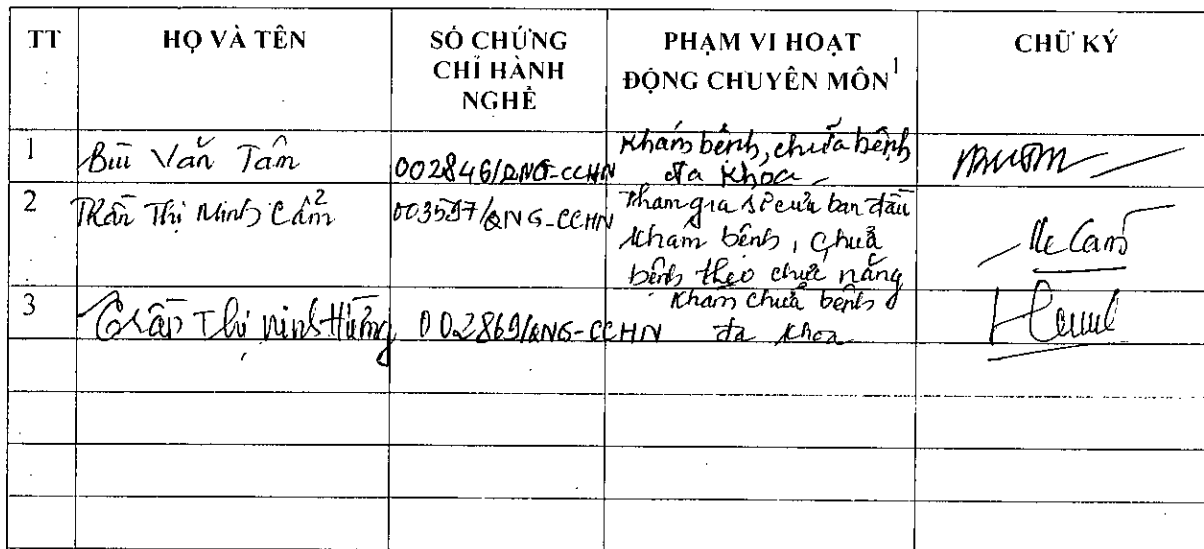 TT HỌ VÀ TÊN SỐ CHỨNG CHỈ HÀNH NGHỀ PHẠM VI HOẠT ĐỘNG CHUYÊN MÔN1 CHỮ KÝ
1 Bùi Văn Tâm 002846/QNG-CCHN Khám bệnh, chữa bệnh
đa khoa
2 Trần Thị Minh Cẩm 003597/QNG-CCHN Tham gia sơ cứu ban đầu
khám bệnh, chữa
bệnh theo chức năng
3 Trần Thị Minh Hường 002869/QNG-CCHN Khám chữa bệnh
đa khoa